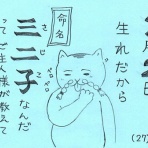 月2日
生れだから
命名
三二子なんだ
ってご主人様が教えて
(27)